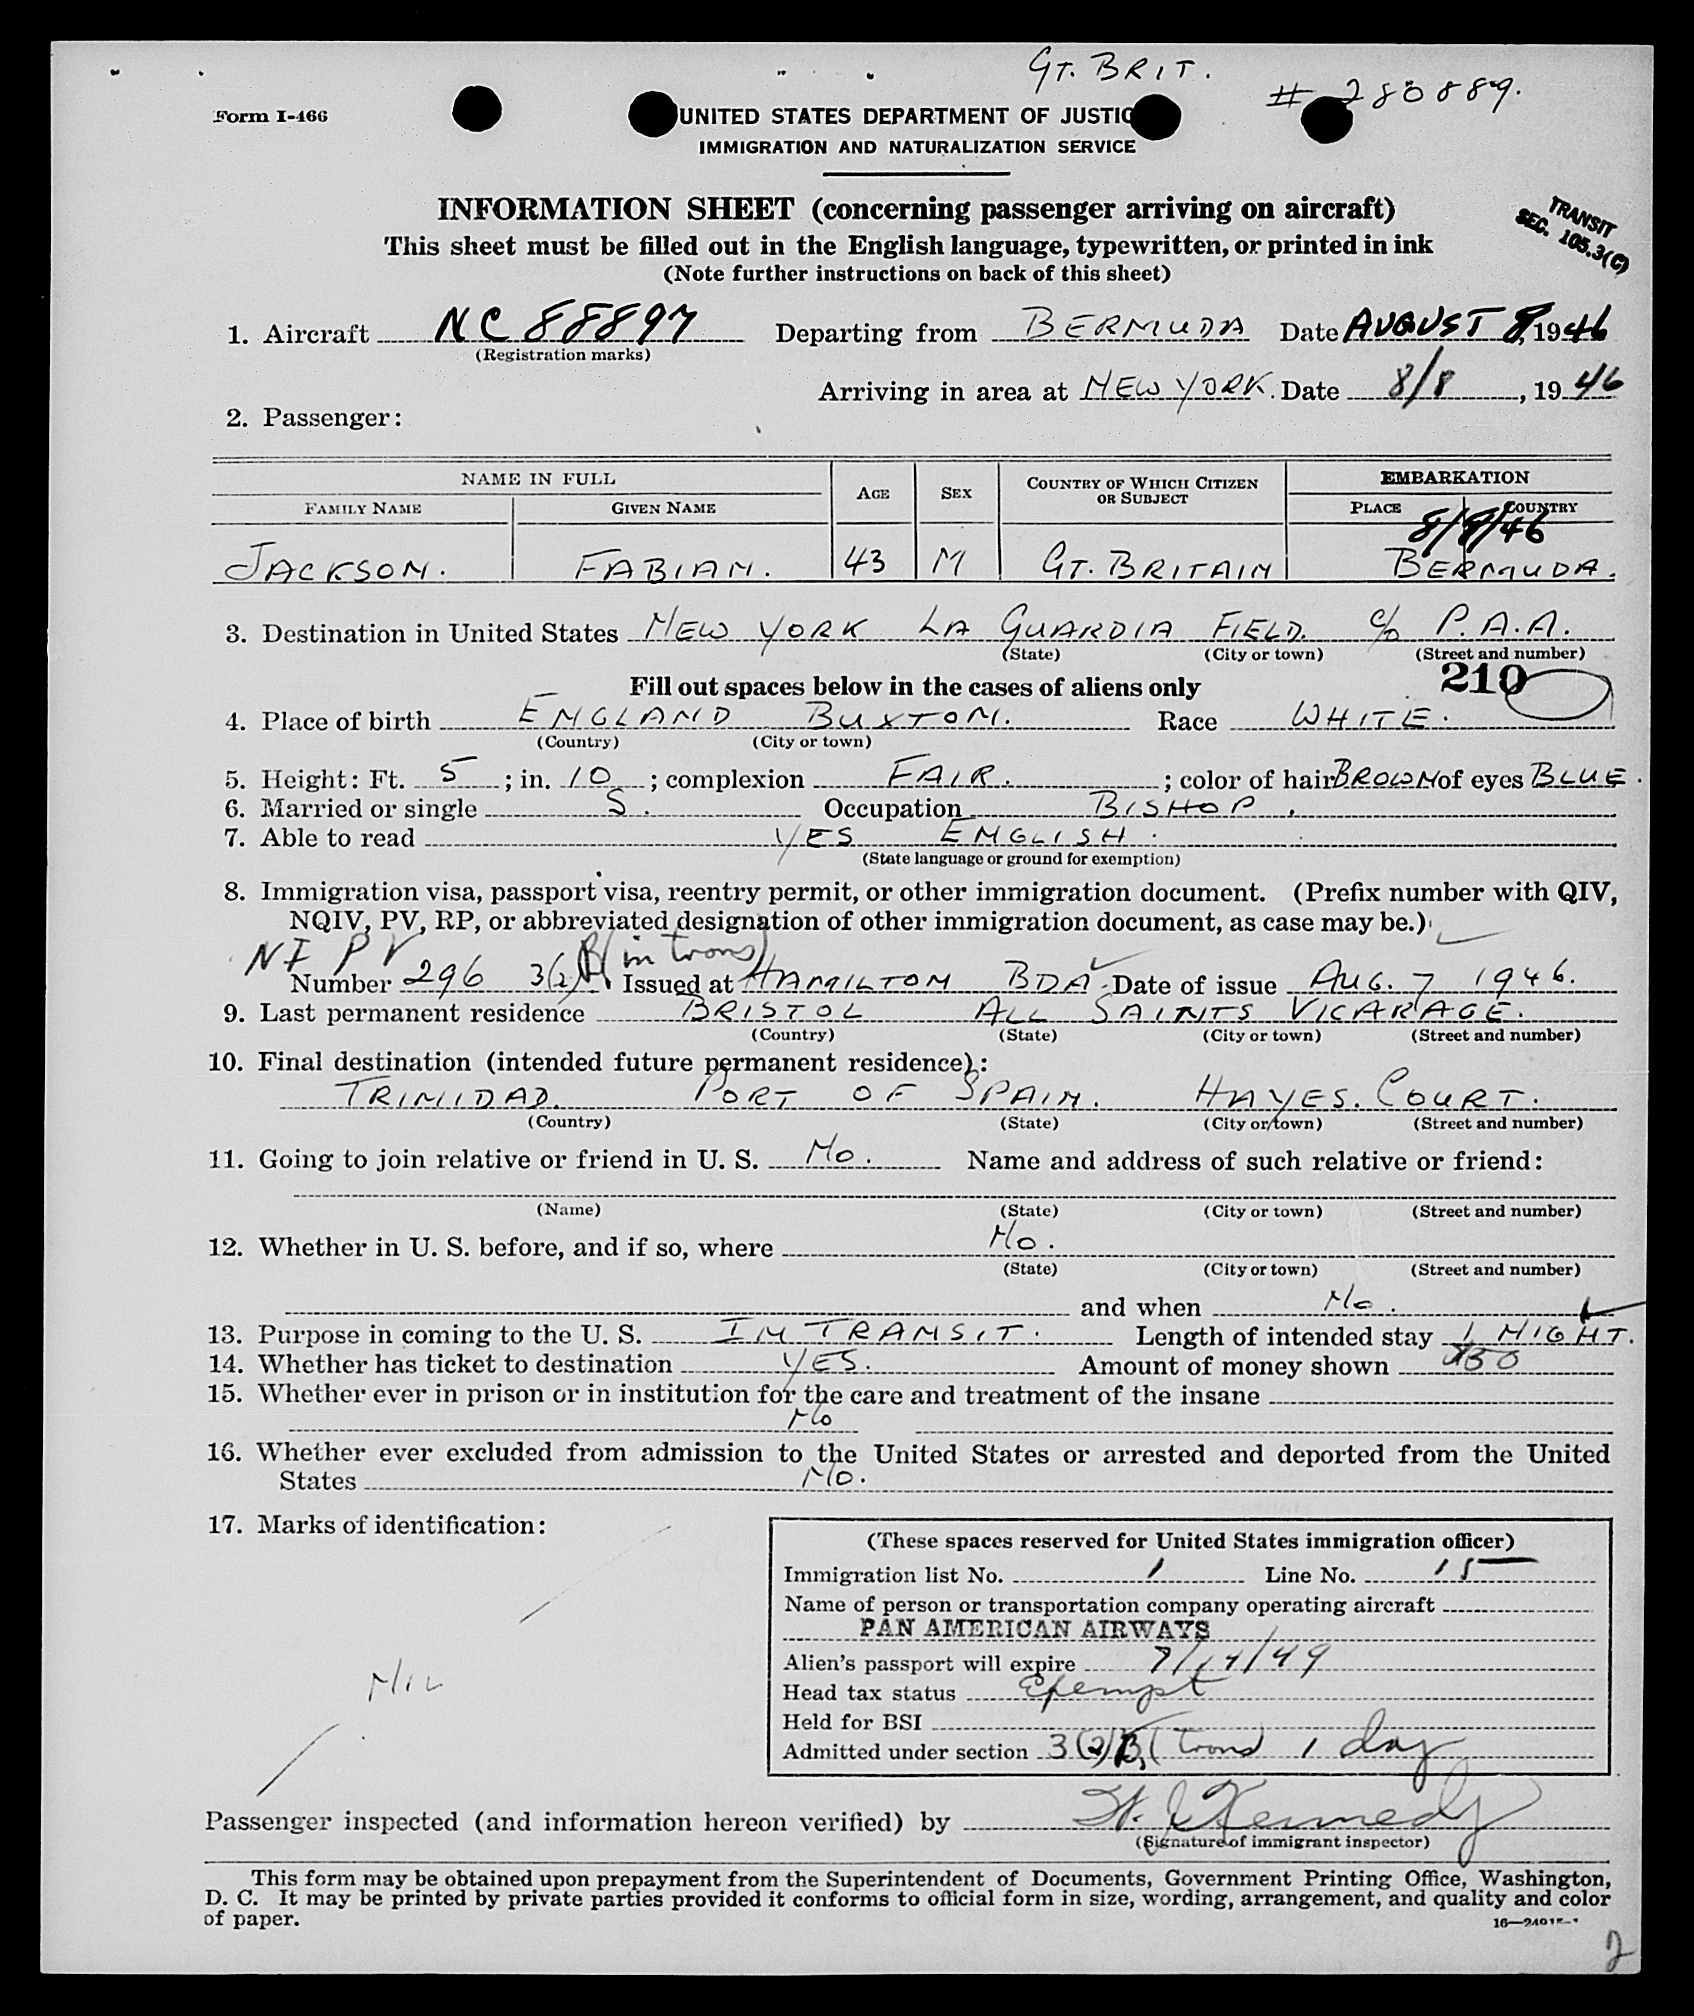 GT. BRIT.
# 280889.
Form I-466
UNITED STATES DEPARTMENT OF JUSTIC
IMMIGRATION AND NATURALIZATION SERVICE
INFORMATION SHEET (concerning passenger arriving on aircraft)
TRANSIT
SEC. 105.3(C)
This sheet must be filled out in the English language, typewritten, or printed in ink
(Note further instructions on back of this sheet)
1. Aircraft NC 88897 Departing from BERMUDA Date AUGUST 8, 1946
(Registration marks)
Arriving in area at NEW YORK. Date 8/8, 1946
2. Passenger:
NAME IN FULL AGE SEX COUNTRY OF WHICH CITIZEN OR SUBJECT EMBARKATION
FAMILY NAME GIVEN NAME PLACE COUNTRY
8/8/46
JACKSON. FABIAN. 43 M GT. BRITAIN BERMUDA.
3. Destination in United States NEW YORK LA GUARDIA FIELD. c/o P.A.A.
(State) (City or town) (Street and number)
Fill out spaces below in the cases of aliens only 210
4. Place of birth ENGLAND BUXTON. Race WHITE.
(Country) (City or town)
5. Height: Ft. 5; in. 10; complexion FAIR.; color of hair BROWN of eyes BLUE.
6. Married or single S. Occupation BISHOP.
7. Able to read YES ENGLISH.
(State language or ground for exemption)
8. Immigration visa, passport visa, reentry permit, or other immigration document. (Prefix number with QIV,
NQIV, PV, RP, or abbreviated designation of other immigration document, as case may be.)
NI PV (in trans)
Number 296 3(2)B Issued at HAMILTON BDA Date of issue AUG. 7 1946.
9. Last permanent residence BRISTOL ALL SAINTS VICARAGE.
(Country) (State) (City or town) (Street and number)
10. Final destination (intended future permanent residence):
TRINIDAD. PORT OF SPAIN. HAYES. COURT.
(Country) (State) (City or town) (Street and number)
11. Going to join relative or friend in U. S. NO. Name and address of such relative or friend:
(Name) (State) (City or town) (Street and number)
12. Whether in U. S. before, and if so, where NO.
(State) (City or town) (Street and number)
and when NO.
13. Purpose in coming to the U. S. IN TRANSIT. Length of intended stay 1 NIGHT.
14. Whether has ticket to destination YES. Amount of money shown $50
15. Whether ever in prison or in institution for the care and treatment of the insane
NO
16. Whether ever excluded from admission to the United States or arrested and deported from the United
States NO.
17. Marks of identification:
NIL
(These spaces reserved for United States immigration officer)
Immigration list No. 1 Line No. 15
Name of person or transportation company operating aircraft
PAN AMERICAN AIRWAYS
Alien's passport will expire 7/14/49
Head tax status Exempt
Held for BSI
Admitted under section 3(2)B, (trans) 1 day
Passenger inspected (and information hereon verified) by Kennedy
(Signature of immigrant inspector)
This form may be obtained upon prepayment from the Superintendent of Documents, Government Printing Office, Washington,
D. C. It may be printed by private parties provided it conforms to official form in size, wording, arrangement, and quality and color
of paper.
2